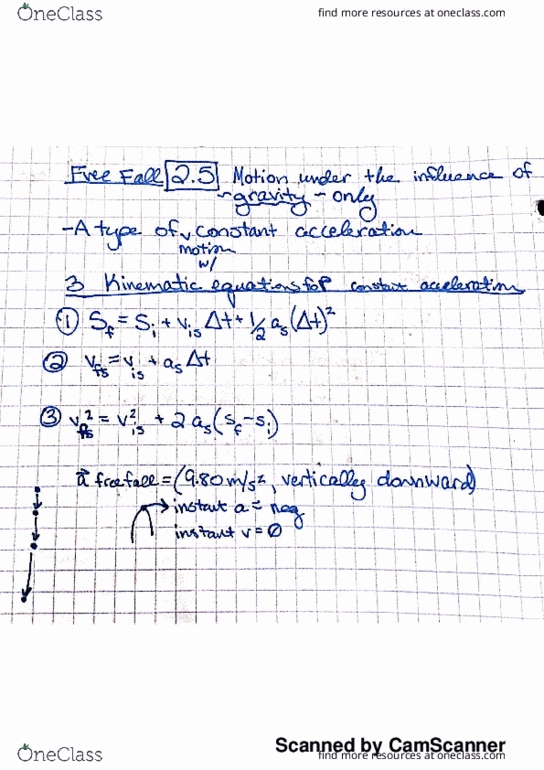 OneClass
find more resources at oneclass.com
Free Fall 2.5 Motion under the influence of
-gravity - only
-A type of v constant acceleration
motion
w/
3 Kinematic equations for constant acceleration
① S_f = S_i + v_is Δt + 1/2 a_s (Δt)²
② v_fs = v_is + a_s Δt
③ v_fs² = v_is² + 2 a_s (s_f - s_i)
a⃗ free fall = (9.80 m/s², vertically downward)
→ instant a = neg
instant v = 0
Scanned by CamScanner
OneClass
find more resources at oneclass.com